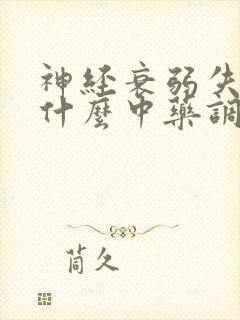 神经衰弱失
什麼中藥調
筒久